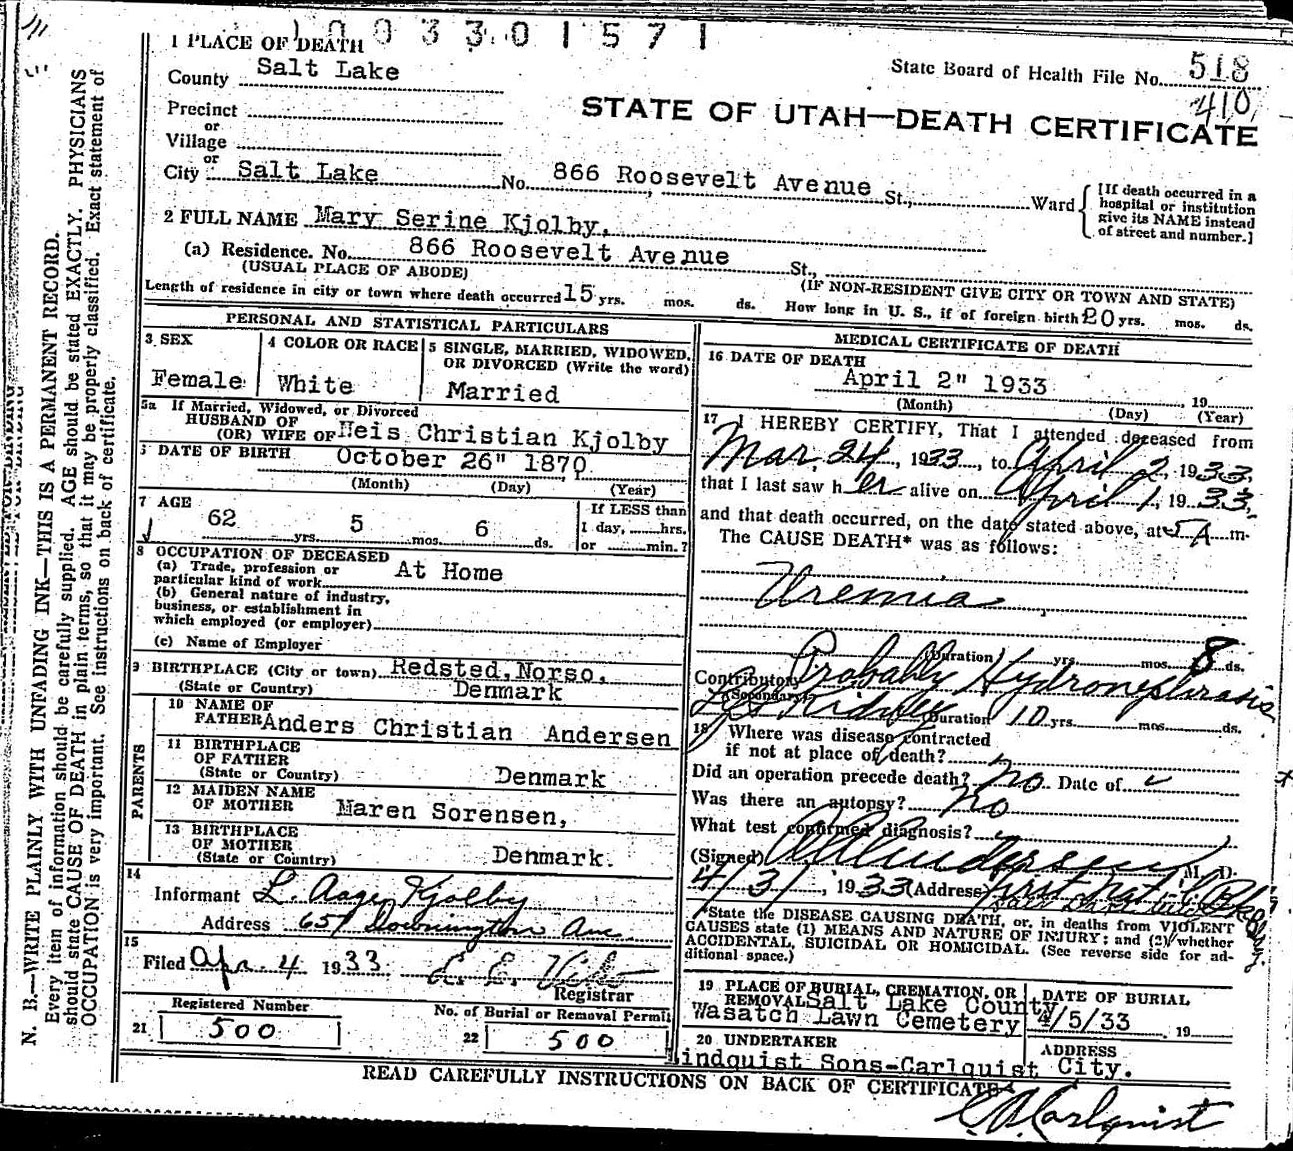 1003301571
1 PLACE OF DEATH
County Salt Lake
State Board of Health File No. 518
410
Precinct
or
Village
or
City Salt Lake No. 866 Roosevelt Avenue St., Ward
STATE OF UTAH—DEATH CERTIFICATE
[If death occurred in a
hospital or institution
give its NAME instead
of street and number.]
2 FULL NAME Mary Serine Kjolby,
(a) Residence. No. 866 Roosevelt Avenue St.,
(USUAL PLACE OF ABODE) (IF NON-RESIDENT GIVE CITY OR TOWN AND STATE)
Length of residence in city or town where death occurred 15 yrs. mos. ds. How long in U. S., if of foreign birth 20 yrs. mos. ds.
PERSONAL AND STATISTICAL PARTICULARS
3 SEX
Female
4 COLOR OR RACE
White
5 SINGLE, MARRIED, WIDOWED,
OR DIVORCED (Write the word)
Married
5a If Married, Widowed, or Divorced
HUSBAND OF
(OR) WIFE OF Neis Christian Kjolby
DATE OF BIRTH October 26" 1870
(Month) (Day) (Year)
7 AGE
62 yrs. 5 mos. 6 ds.
If LESS than
1 day, hrs.
or min.?
8 OCCUPATION OF DECEASED
(a) Trade, profession or
particular kind of work At Home
(b) General nature of industry,
business, or establishment in
which employed (or employer)
(c) Name of Employer
9 BIRTHPLACE (City or town) Redsted, Norso,
(State or Country) Denmark
PARENTS
10 NAME OF
FATHER Anders Christian Andersen
11 BIRTHPLACE
OF FATHER
(State or Country) Denmark
12 MAIDEN NAME
OF MOTHER Maren Sorensen,
13 BIRTHPLACE
OF MOTHER
(State or Country) Denmark.
14
Informant L. Aage Kjolby
Address 657 Downington Ave
15
Filed Apr. 4 1933
Registrar
Registered Number
21 500
No. of Burial or Removal Permit
22 500
MEDICAL CERTIFICATE OF DEATH
16 DATE OF DEATH
April 2" 1933, 19
(Month) (Day) (Year)
17 I HEREBY CERTIFY, That I attended deceased from
Mar. 24, 1933, to April 2, 1933,
that I last saw her alive on April 1, 1933,
and that death occurred, on the date stated above, at 5 A m.
The CAUSE DEATH* was as follows:
Uremia
(Duration) yrs. mos. 8 ds.
Contributory Probably Hydronephrosis
(Secondary) Kidney (Duration 10 yrs. mos. ds.
18 Where was disease contracted
if not at place of death?
Did an operation precede death? no Date of
Was there an autopsy? no
What test confirmed diagnosis?
(Signed) Andersen M. D.
4/3/, 1933 (Address) First Nat'l
*State the DISEASE CAUSING DEATH, or, in deaths from VIOLENT
CAUSES state (1) MEANS AND NATURE OF INJURY; and (2) whether
ACCIDENTAL, SUICIDAL OR HOMICIDAL. (See reverse side for ad-
ditional space.)
19 PLACE OF BURIAL, CREMATION, OR
REMOVAL Salt Lake County
Wasatch Lawn Cemetery
DATE OF BURIAL
4/5/33, 19
20 UNDERTAKER
Lindquist Sons-Carlquist
ADDRESS
City.
READ CAREFULLY INSTRUCTIONS ON BACK OF CERTIFICATE
Carlquist
N. B.—WRITE PLAINLY WITH UNFADING INK—THIS IS A PERMANENT RECORD.
Every item of information should be carefully supplied. AGE should be stated EXACTLY. PHYSICIANS
should state CAUSE OF DEATH in plain terms, so that it may be properly classified. Exact statement of
OCCUPATION is very important. See instructions on back of certificate.